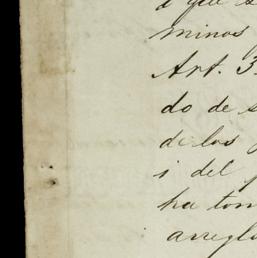 a que s
minos
Art. 3
do de s
de los
i del p
ha tom
arregl